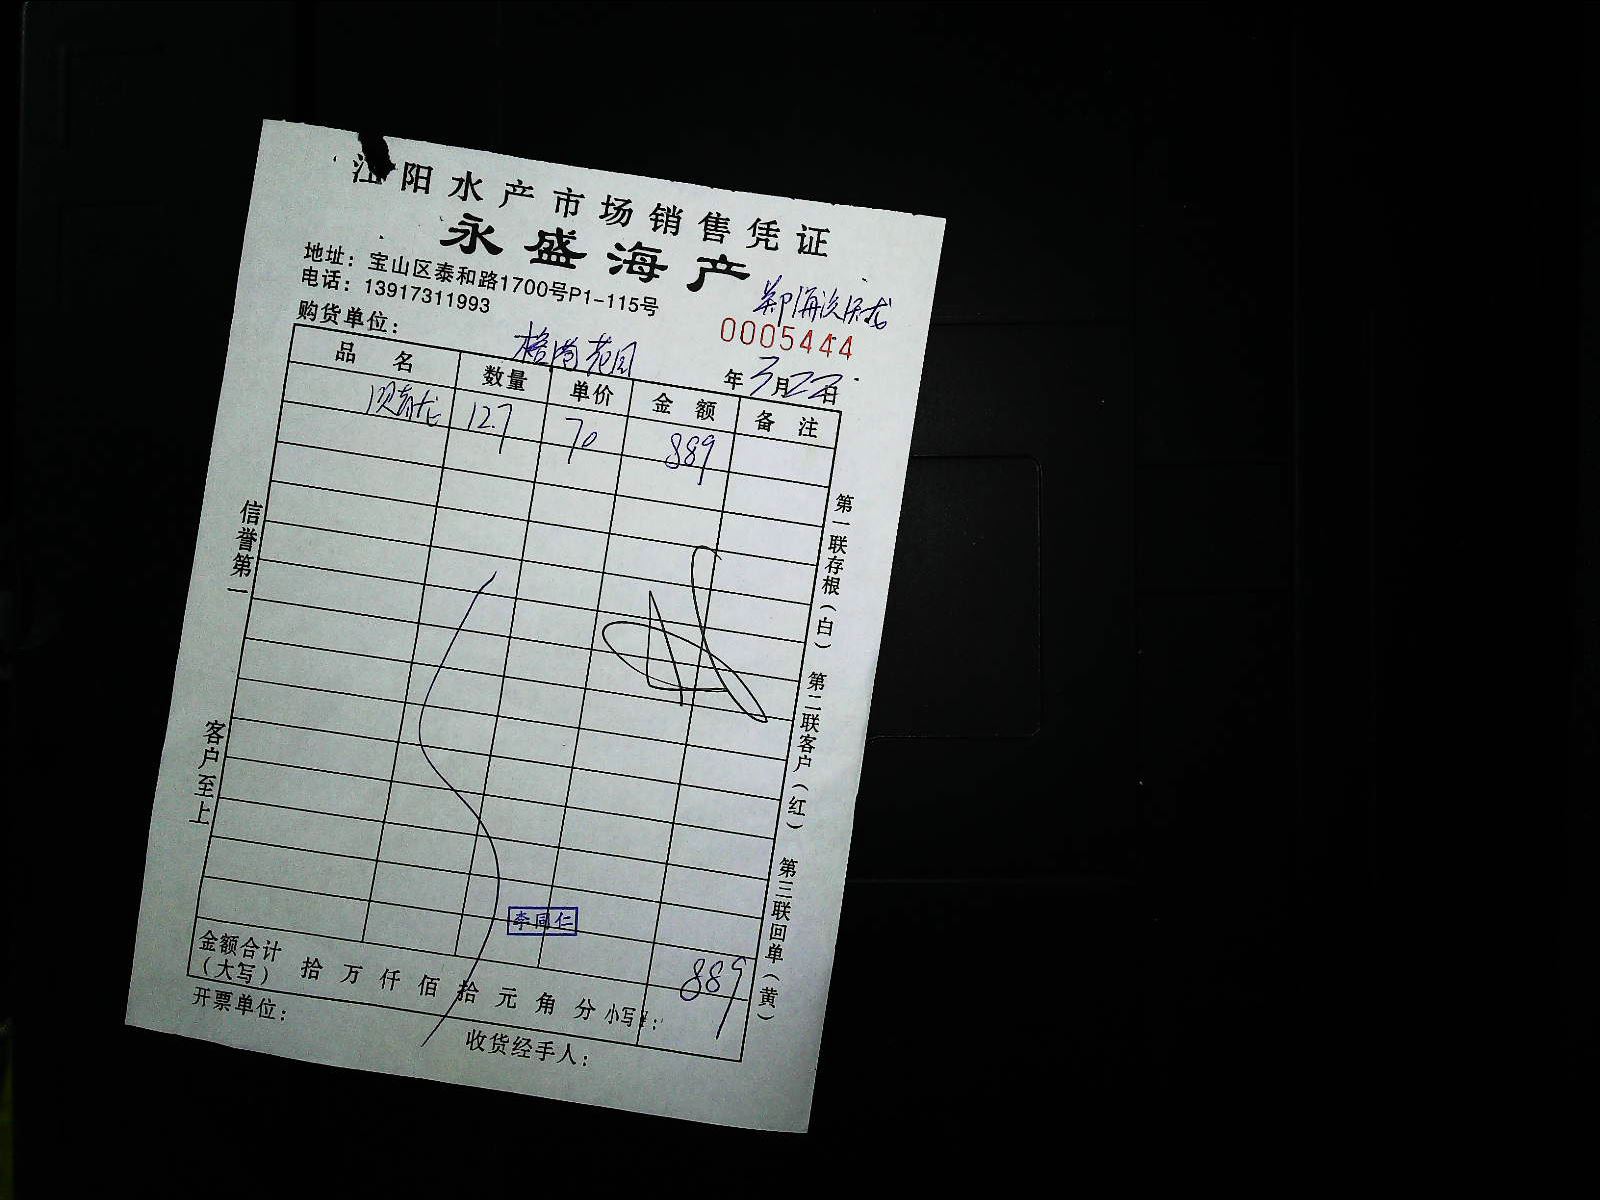 江阳水产市场销售凭证
永盛海产
地址：宝山区泰和路1700号P1-115号
电话：13917311993
0005444
购货单位：
花园
年3月22日
品名 数量 单价 金额 备注
12.7 70 889
信誉第一
客户至上
第一联存根（白） 第二联客户（红） 第三联回单（黄）
李同仁
金额合计（大写） 拾万仟佰拾元角分 小写¥： 889
开票单位： 收货经手人：